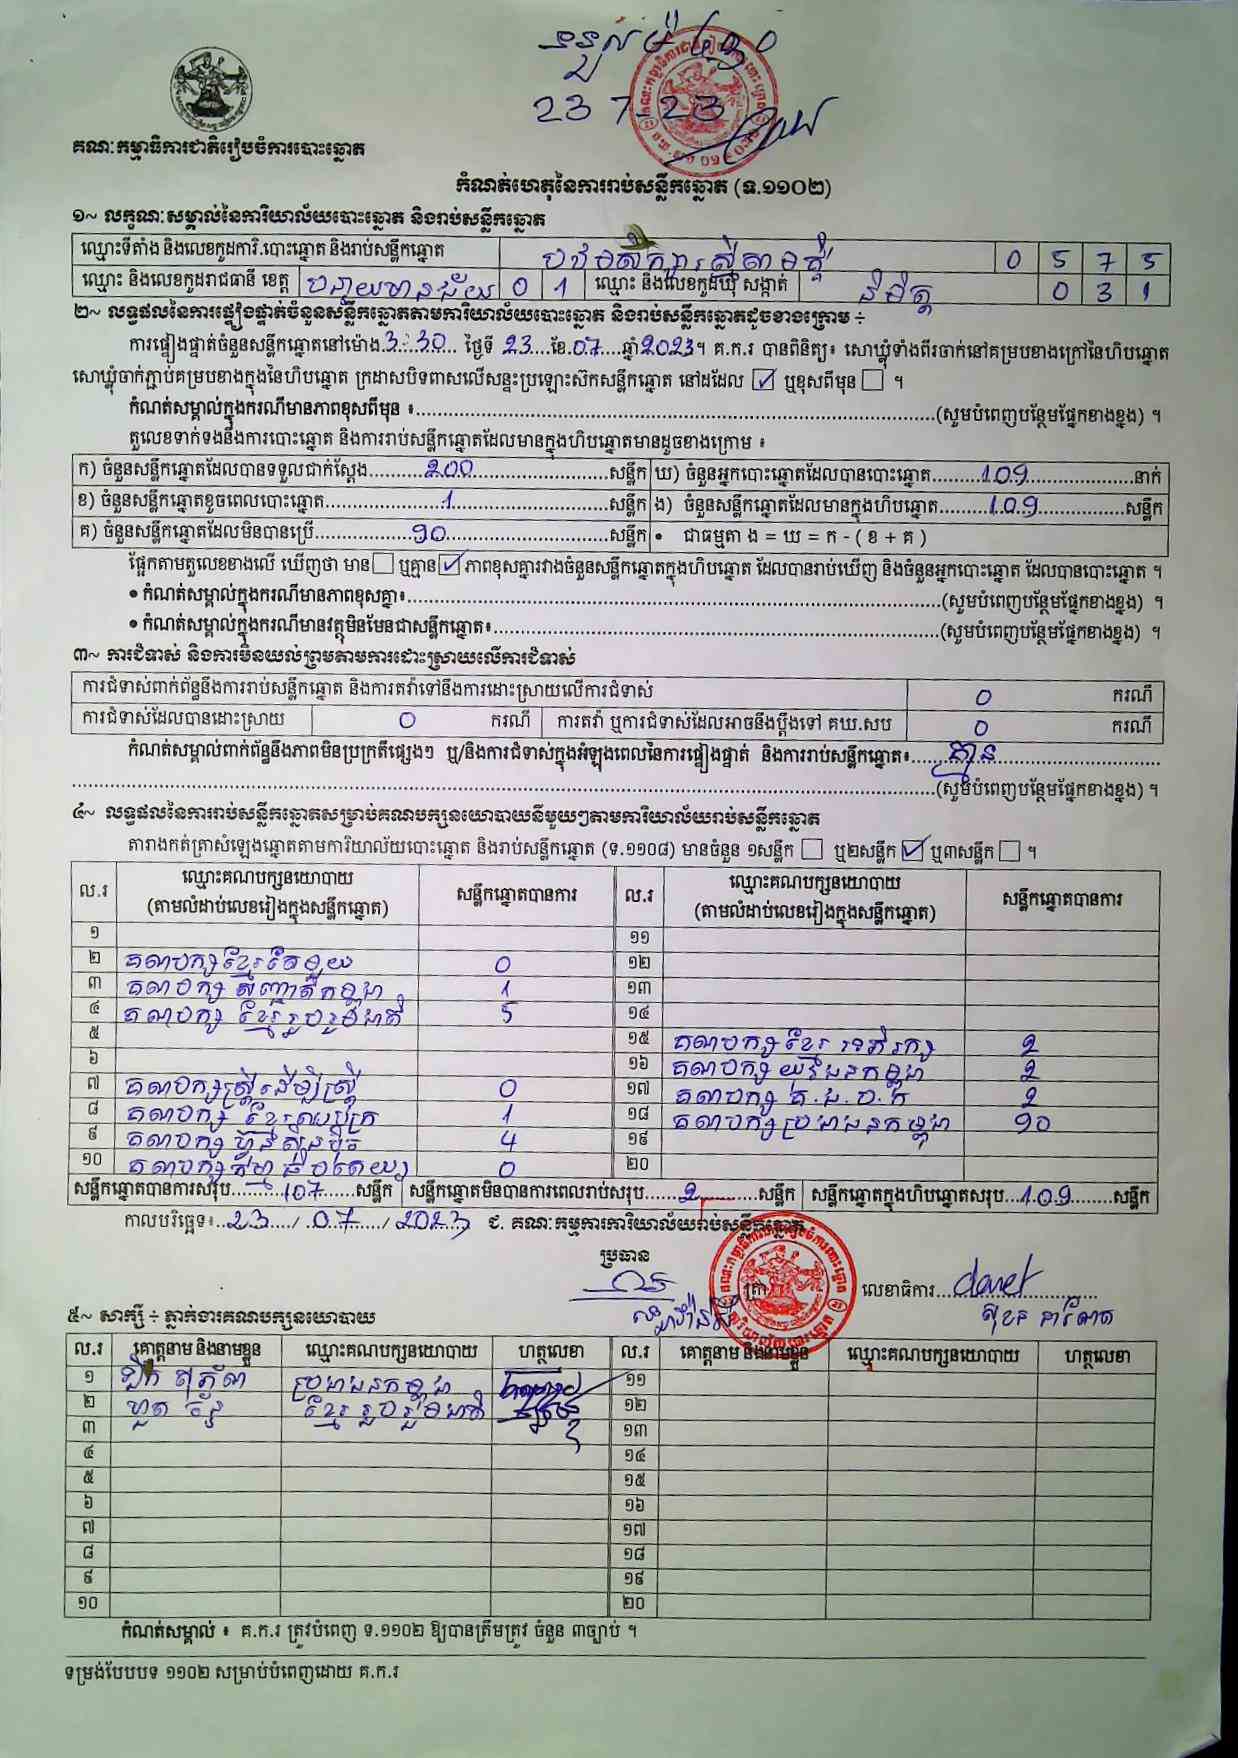 ទទួលម៉ោង
23 7-23
គណៈកម្មាធិការជាតិរៀបចំការបោះឆ្នោត
កំណត់ហេតុនៃការរាប់សន្លឹកឆ្នោត (ទ.១១០២)
១~ លក្ខណៈសម្គាល់នៃការិយាល័យបោះឆ្នោត និងរាប់សន្លឹកឆ្នោត
ឈ្មោះទីតាំង និងលេខកូដការិ.បោះឆ្នោត និងរាប់សន្លឹកឆ្នោត បឋមសិក្សា 0 5 7 5
ឈ្មោះ និងលេខកូដរាជធានី ខេត្ត បន្ទាយមានជ័យ 0 1 ឈ្មោះ និងលេខកូដឃុំ សង្កាត់ និមិត្ត 0 3 1
២~ លទ្ធផលនៃការផ្ទៀងផ្ទាត់ចំនួនសន្លឹកឆ្នោតតាមការិយាល័យបោះឆ្នោត និងរាប់សន្លឹកឆ្នោតដូចខាងក្រោម ÷
ការផ្ទៀងផ្ទាត់ចំនួនសន្លឹកឆ្នោតនៅម៉ោង 3:30 ថ្ងៃទី 23 ខែ 07 ឆ្នាំ 2023។ គ.ក.រ បានពិនិត្យ៖ សោឃ្លុំទាំងពីរចាក់នៅគម្របខាងក្រៅនៃហិបឆ្នោត
សោឃ្លុំចាក់ភ្ជាប់គម្របខាងក្នុងនៃហិបឆ្នោត ក្រដាសបិទពាសលើសន្ទះប្រឡោះស៊កសន្លឹកឆ្នោត នៅដដែល ☑ ឬខុសពីមុន ☐ ។
កំណត់សម្គាល់ក្នុងករណីមានភាពខុសពីមុន ៖..........(សូមបំពេញបន្ថែមផ្នែកខាងខ្នង) ។
តួលេខទាក់ទងនឹងការបោះឆ្នោត និងការរាប់សន្លឹកឆ្នោតដែលមានក្នុងហិបឆ្នោតមានដូចខាងក្រោម ៖
ក) ចំនួនសន្លឹកឆ្នោតដែលបានទទួលជាក់ស្តែង 200 សន្លឹក ឃ) ចំនួនអ្នកបោះឆ្នោតដែលបានបោះឆ្នោត 109 នាក់
ខ) ចំនួនសន្លឹកឆ្នោតខូចពេលបោះឆ្នោត 1 សន្លឹក ង) ចំនួនសន្លឹកឆ្នោតដែលមានក្នុងហិបឆ្នោត 109 សន្លឹក
គ) ចំនួនសន្លឹកឆ្នោតដែលមិនបានប្រើ 90 សន្លឹក • ជាធម្មតា ង = ឃ = ក - ( ខ + គ )
ផ្អែកតាមតួលេខខាងលើ ឃើញថា មាន ☐ ឬគ្មាន ☑ ភាពខុសគ្នារវាងចំនួនសន្លឹកឆ្នោតក្នុងហិបឆ្នោត ដែលបានរាប់ឃើញ និងចំនួនអ្នកបោះឆ្នោត ដែលបានបោះឆ្នោត ។
• កំណត់សម្គាល់ក្នុងករណីមានភាពខុសគ្នា៖..........(សូមបំពេញបន្ថែមផ្នែកខាងខ្នង) ។
• កំណត់សម្គាល់ក្នុងករណីមានវត្ថុមិនមែនជាសន្លឹកឆ្នោត៖..........(សូមបំពេញបន្ថែមផ្នែកខាងខ្នង) ។
៣~ ការជំទាស់ និងការមិនយល់ព្រមតាមការដោះស្រាយលើការជំទាស់
ការជំទាស់ពាក់ព័ន្ធនឹងការរាប់សន្លឹកឆ្នោត និងការតវ៉ាទៅនឹងការដោះស្រាយលើការជំទាស់ 0 ករណី
ការជំទាស់ដែលបានដោះស្រាយ 0 ករណី ការតវ៉ា ឬការជំទាស់ដែលអាចនឹងប្តឹងទៅ គឃ.សប 0 ករណី
កំណត់សម្គាល់ពាក់ព័ន្ធនឹងភាពមិនប្រក្រតីផ្សេងៗ ឬ/និងការជំទាស់ក្នុងអំឡុងពេលនៃការផ្ទៀងផ្ទាត់ និងការរាប់សន្លឹកឆ្នោត៖ គ្មាន
..........(សូមបំពេញបន្ថែមផ្នែកខាងខ្នង) ។
៤~ លទ្ធផលនៃការរាប់សន្លឹកឆ្នោតសម្រាប់គណបក្សនយោបាយនីមួយៗតាមការិយាល័យរាប់សន្លឹកឆ្នោត
តារាងកត់ត្រាសំឡេងឆ្នោតតាមការិយាល័យបោះឆ្នោត និងរាប់សន្លឹកឆ្នោត (ទ.១១០៨) មានចំនួន ១សន្លឹក ☐ ឬ២សន្លឹក ☑ ឬ៣សន្លឹក ☐ ។
ល.រ ឈ្មោះគណបក្សនយោបាយ (តាមលំដាប់លេខរៀងក្នុងសន្លឹកឆ្នោត) សន្លឹកឆ្នោតបានការ ល.រ ឈ្មោះគណបក្សនយោបាយ (តាមលំដាប់លេខរៀងក្នុងសន្លឹកឆ្នោត) សន្លឹកឆ្នោតបានការ
១ ១១
២ គណបក្សខ្មែរតែមួយ 0 ១២
៣ គណបក្ស សញ្ជាតិកម្ពុជា 1 ១៣
៤ គណបក្ស ខ្មែររួបរួមជាតិ 5 ១៤
៥ ១៥ គណបក្សខ្មែរ អភិរក្ស 2
៦ ១៦ គណបក្ស យុវជនកម្ពុជា 2
៧ គណបក្សស្ត្រីដើម្បីស្ត្រី 0 ១៧ គណបក្ស ក.ជ.ប.ក 2
៨ គណបក្ស ខ្មែរឈប់ក្រ 1 ១៨ គណបក្សប្រជាជនកម្ពុជា 90
៩ គណបក្ស ហ្វ៊ុនស៊ិនប៉ិច 4 ១៩
១០ គណបក្សធម្មាធិបតេយ្យ 0 ២០
សន្លឹកឆ្នោតបានការសរុប 107 សន្លឹក សន្លឹកឆ្នោតមិនបានការពេលរាប់សរុប 2 សន្លឹក សន្លឹកឆ្នោតក្នុងហិបឆ្នោតសរុប 109 សន្លឹក
កាលបរិច្ឆេទ៖ 23 / 07 / 2023 ជ. គណៈកម្មការការិយាល័យរាប់សន្លឹកឆ្នោត
ប្រធាន
ត្រា លេខាធិការ danet
សុខន ដាណែត
៥~ សាក្សី ÷ ភ្នាក់ងារគណបក្សនយោបាយ
ល.រ គោត្តនាម និងនាមខ្លួន ឈ្មោះគណបក្សនយោបាយ ហត្ថលេខា ល.រ គោត្តនាម និងនាមខ្លួន ឈ្មោះគណបក្សនយោបាយ ហត្ថលេខា
១ ប្រជាជនកម្ពុជា ១១
២ ខ្មែររួបរួមជាតិ ១២
៣ ១៣
៤ ១៤
៥ ១៥
៦ ១៦
៧ ១៧
៨ ១៨
៩ ១៩
១០ ២០
កំណត់សម្គាល់ ៖ គ.ក.រ ត្រូវបំពេញ ទ.១១០២ ឱ្យបានត្រឹមត្រូវ ចំនួន ៣ច្បាប់ ។
ទម្រង់បែបបទ ១១០២ សម្រាប់បំពេញដោយ គ.ក.រ